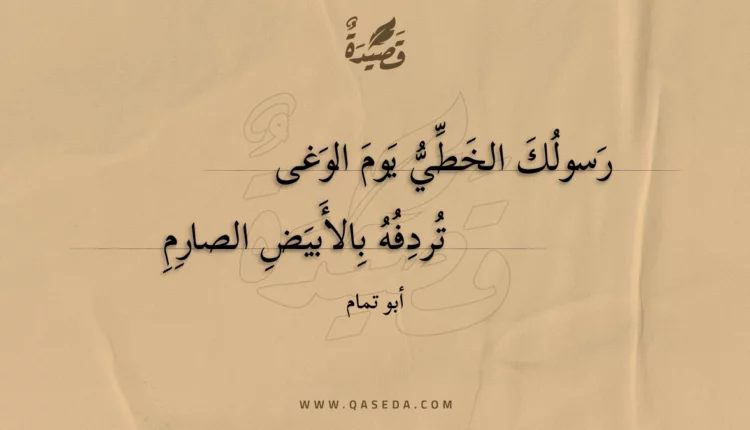 قَصِيدَةٌ
رَسولُكَ الخَطِّيُّ يَومَ الوَغى
تُردِفُهُ بِالأَبيَضِ الصارِمِ
أبو تمام
WWW.QASEDA.COM